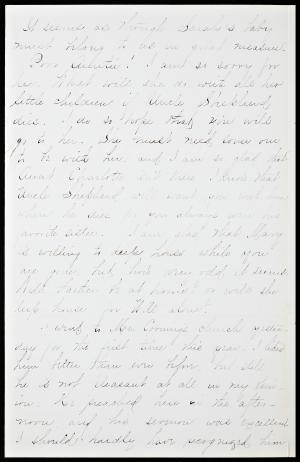 It seems as though Sarah's baby
must belong to us in great measure.
Poor Auntie! I am so sorry for
her. What will she do with all her
little children if Uncle Shepherd
dies. I do so hope that you will
go to her. She must need some one
to be with her, and I am so glad that
Aunt Charlotte isn't there. I know that
Uncle Shepherd will want you with him
when he dies for you always were his
favorite sister. I am glad that Mary
is willing to keep house while you
are gone, but how very odd it seems.
Will be at home? or will she
keep house for Will alone?
I went to Mr. church yester-
day for the first time this year. I liked
him better than ever before, but still
he is not pleasant at all in my opin-
ion. He preached here in the after-
noon, and his sermon was excellent.
I should hardly have recognized him